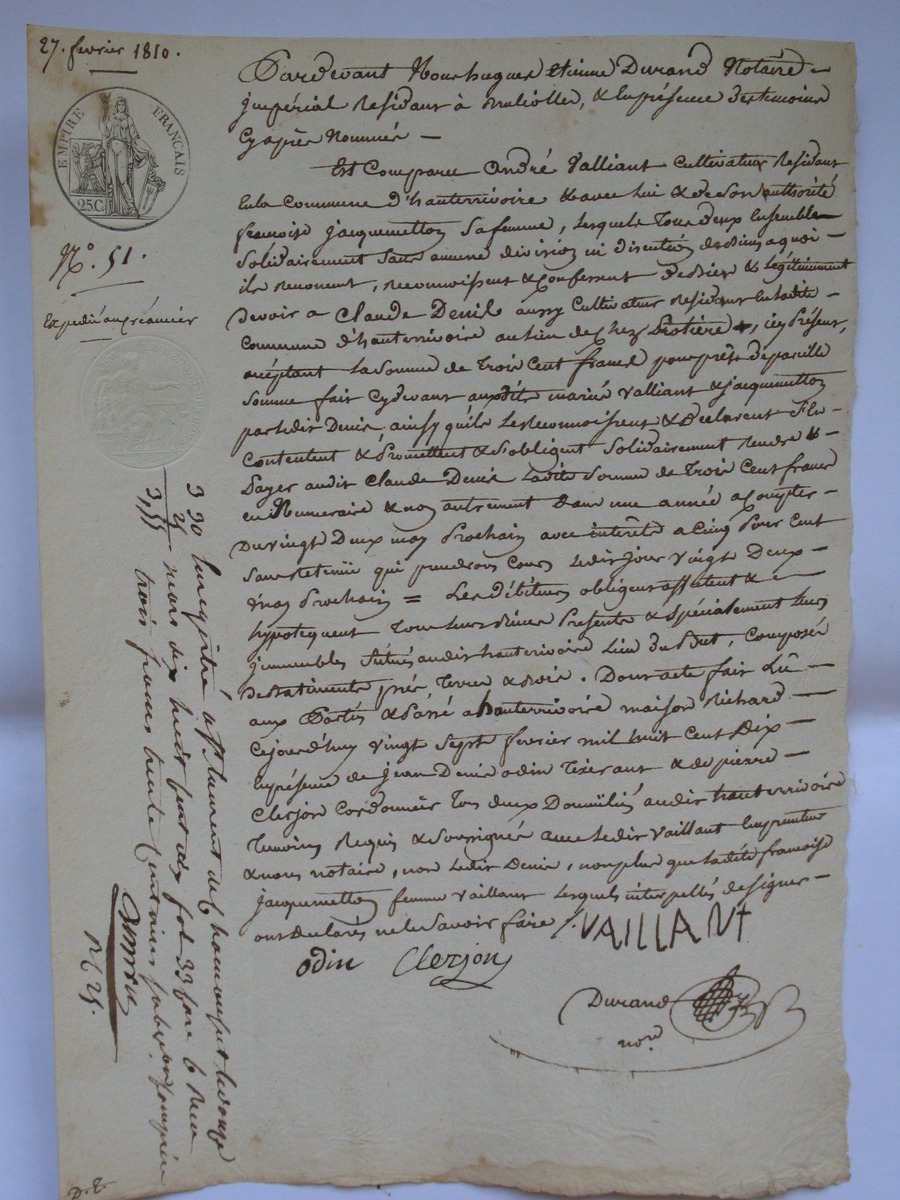 27. fevrier 1810.
EMPIRE FRANÇAIS
25C.
N.º 51.
Expedié au créancier
Pardevant Nous hugues etienne Durand Notaire
imperial Residant à , & En presence des temoins
Cy après Nommés
Est Comparu André Valliant Cultivateur Residant
En la Commune d'hauterrivoire & avec lui & de son authorité
francoise jacquemetton sa femme, lesquels tous deux Ensemble
Solidairement sans aucune division ni discution de biens a quoi
ils renoncent, reconnoissent & Confessent & légitimement
Devoir a Claude Denis aussy Cultivateur Residant En ladite
Commune d'hauterrivoire au lieu de chez , icy Présent,
acceptant La Somme de Trois Cent francs pour prêt de pareille
Somme fait Cydevant auxdits mariés Valliant & jacquemetton
par ledit Denis ainsy qu'ils Le reconnoissent & Declarent s'En
Contentent & Promettent & s'obligent Solidairement rendre &
Payer audit Claude Denis Ladite Somme de Trois Cent francs
en Numeraire & non autrement dans une année a Compter
Du vingt Deux may Prochain avec interêts a Cinq Pour Cent
Sans Retenüe qui prendront Cours Ledit jour vingt Deux
may Prochain = Les Débiteurs obligent affectent &
hypotequent Tous leurs Biens Presents & Spécialement leurs
jmmeubles Situés audit hauterivoire Lieu du , Composés
De Batiments, prés, Terres & Bois. Dont acte fait Lû
aux Parties & Passé a hauterrivoire maison Richard
Cejourd'huy vingt Sept fevrier mil huit Cent Dix
En présence de jean Denis odin Tixerant & de pierre
Clerjon Cordonnier Tous deux Domiiliés audit hauterrivoire
Temoins Requis & Soussignés avec Ledit Vaillant Emprunteur
& nous notaire, non Ledit Denis, non plus que Ladite francoise
jacquemetton femme Vaillant Lesquels interpellés de signer
ont Declarés ne le Savoir faire /. VAILLANT
odin Clerjon
Durand
nore
3 30 Enregistré a St laurent de chamousset le douze
25 mars dix huit cent dix fol. 33
3,55 trois francs trente centimes